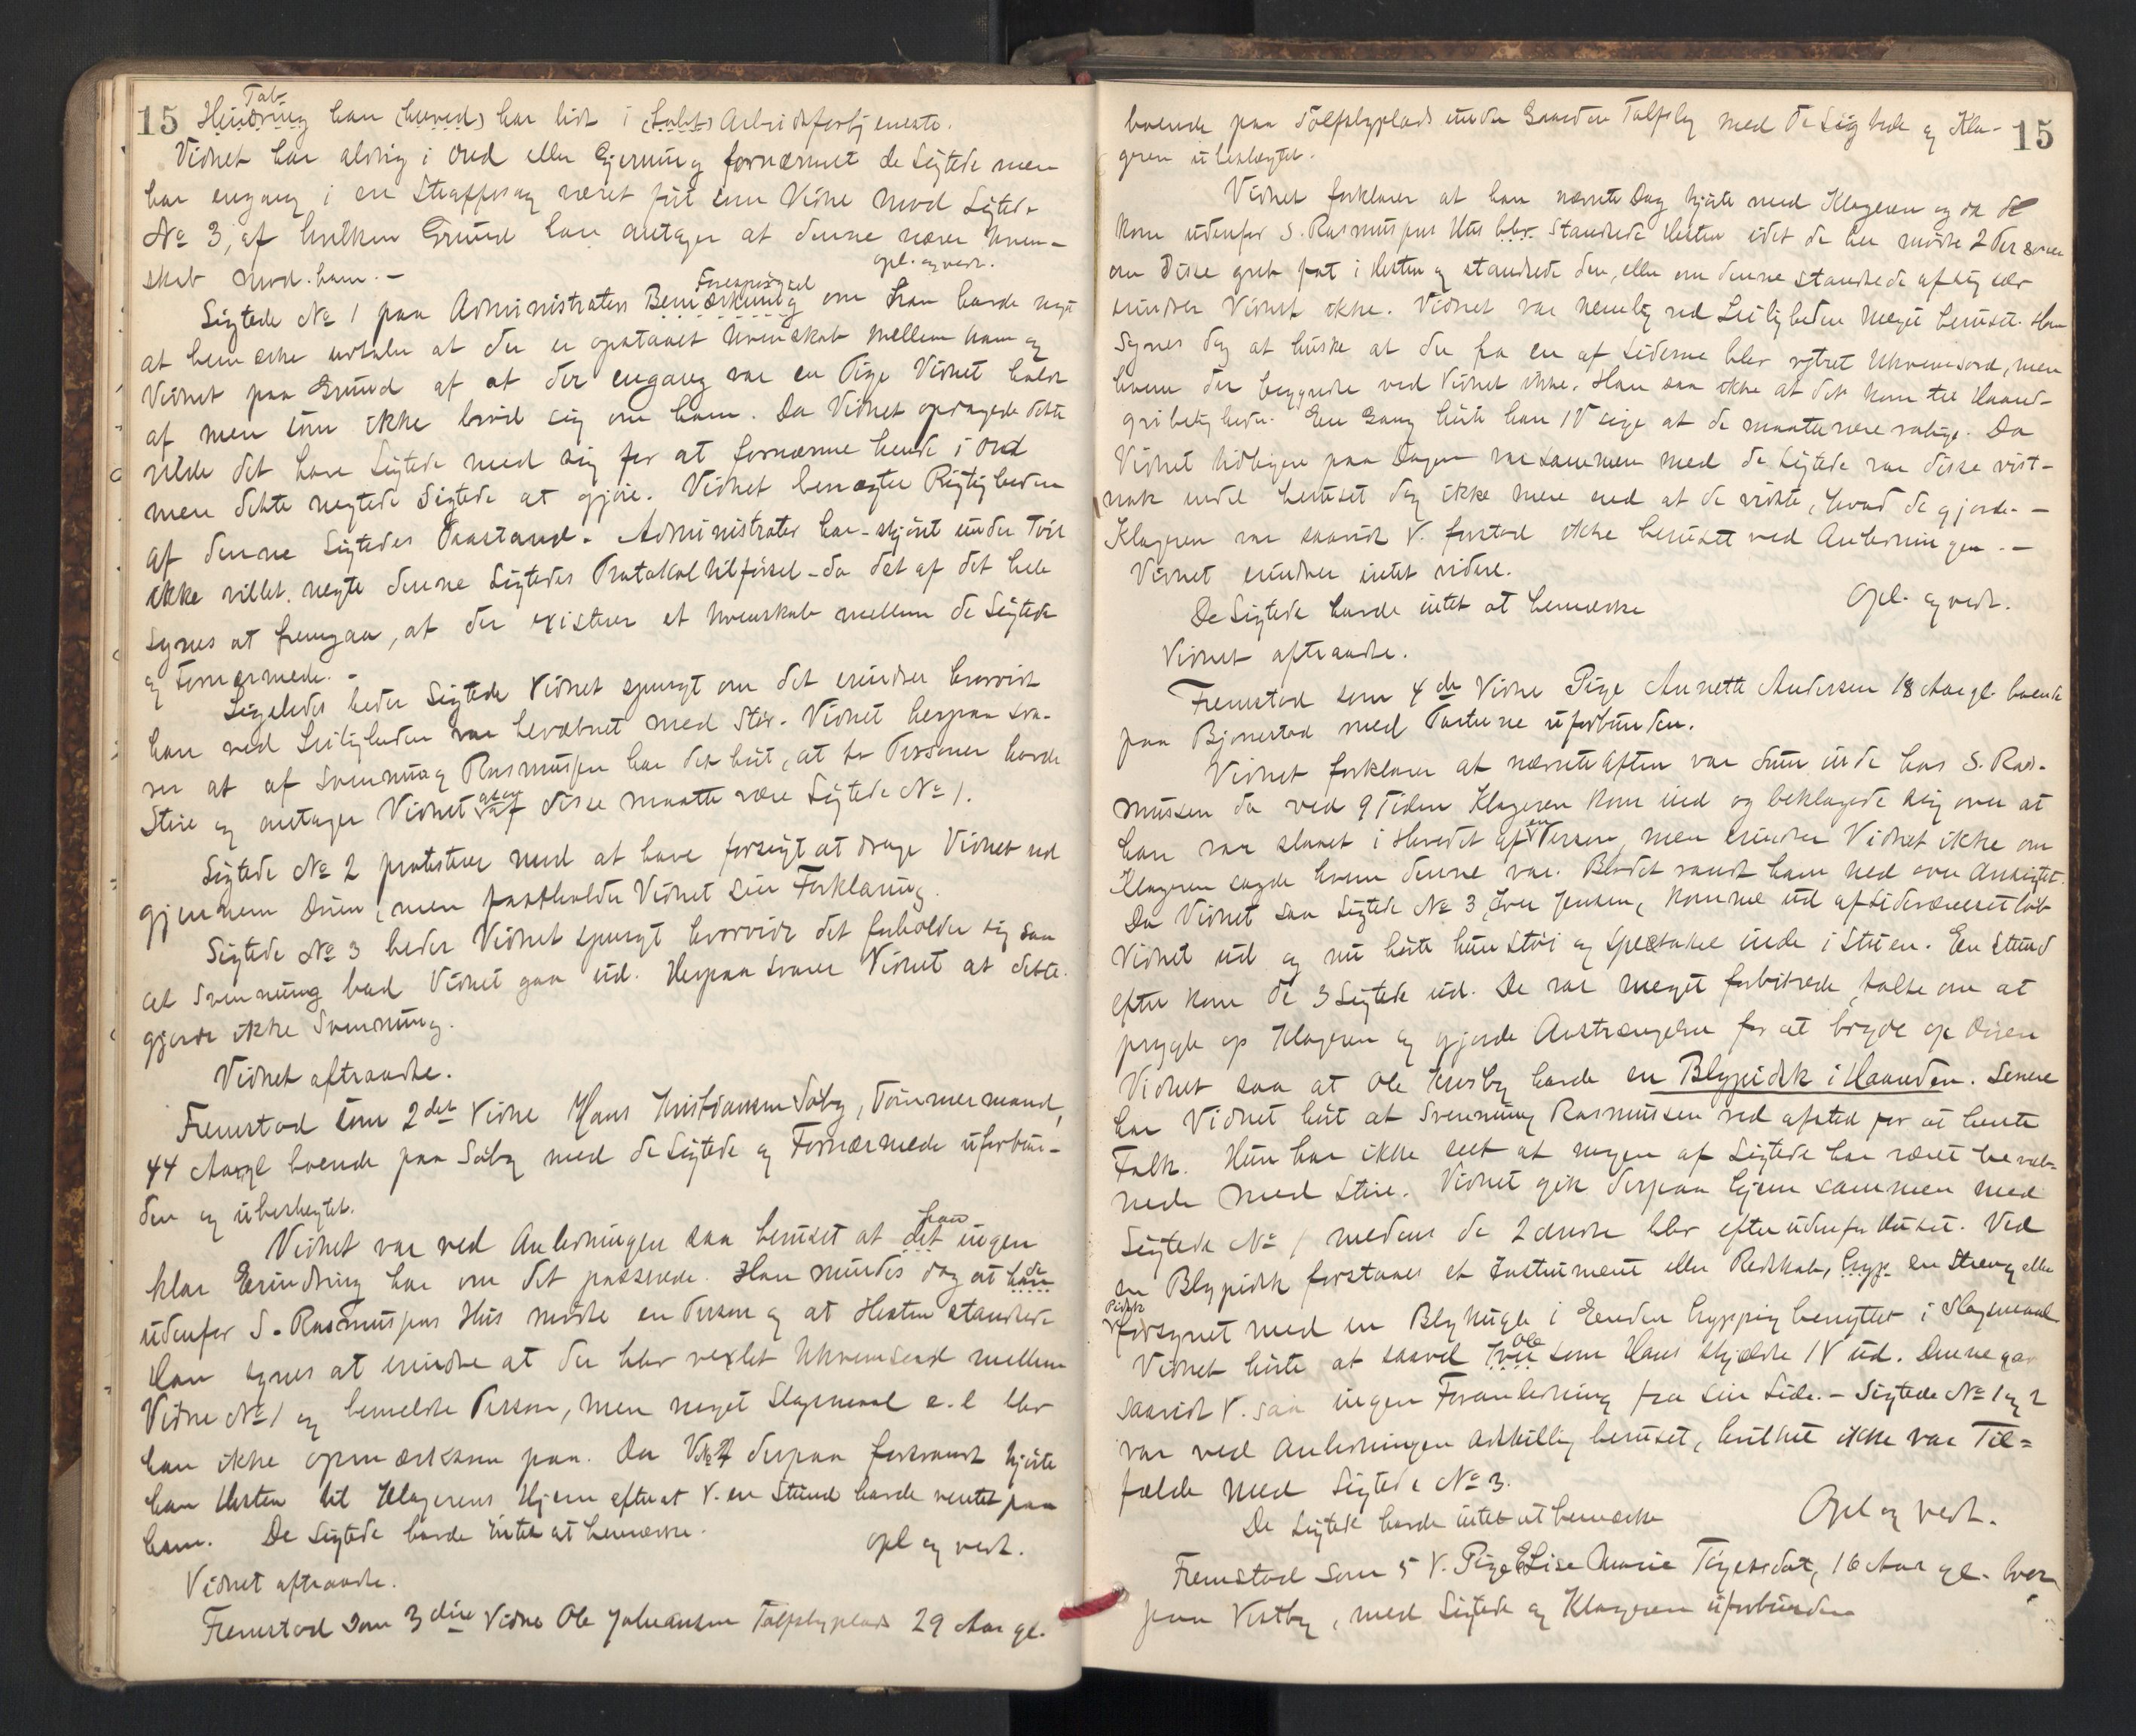 15
Tab
Hindring han (herved) har lidt i (Tabt) Arbeidsfortjeneste.
Vidnet har aldrig i Ord eller Gjerning fornærmet de Sigtede men
har engang i en Straffesag været ført som Vidne mod Sigtede
No 3, af hvilken Grund han antager at denne nærer Uven-
skab mod ham. — Opl. og vedt.
Forespørgsel
Sigtede No 1 paa Administrators Bemærkning om han havde noget
at bemærke udtaler at der er opstaaet Uvenskab mellem ham og
Vidnet paa Grund af at der engang var en Pige Vidnet holdt
af men som ikke brød sig om ham. Da Vidnet opdagede dette
vilde det have Sigtede med sig for at fornærme hende i Ord
men dette negtede Sigtede at gjøre. Vidnet benegter Rigtigheden
af denne Sigtedes Paastand. Administrator har - skjønt under Tvil
ikke villet negte denne Sigtedes Protokoltilførsel - da det af det hele
synes at fremgaa, at der existerer et Uvenskab mellem de Sigtede
og Fornærmede. -
Ligeledes beder Sigtede Vidnet spurgt om det erindrer hvorvidt
han ved Leiligheden var bevæbnet med Stør. Vidnet herpaa sva-
rer at af Svennung Rasmussen har det hørt, at to Personer havde
Støre og antager Vidnet at en af disse maatte være Sigtede No 1.
Sigtede No 2 protesterer mod at have forsøgt at drage Vidnet ud
gjennem Døren, men fastholder Vidnet sin Forklaring.
Sigtede No 3 beder Vidnet spurgt hvorvidt det forholder sig saa
at Svennung bad Vidnet gaa ud. Herpaa svarer Vidnet at dette
gjorde ikke Svennung.
Vidnet aftraadte.
Fremstod som 2det Vidne Hans Kristiansen Såby, Tømmermand,
44 Aar gl boende paa Såby med de Sigtede og Fornærmede uforbun-
den og ubeslegtet.
han
Vidnet var ved Anledningen saa beruset at det ingen
klar Erindring har om det passerede. Han mindes dog at de han
udenfor S. Rasmussens Hus mødte en Person og at Hesten standsede
Han synes at erindre at der blev vexlet Ukvemsord mellem
Vidne No 1 og bemeldte Person, men noget Slagsmaal e. l blev
han ikke opmærksom paa. Da V. No 1 derpaa forsvandt kjørte
han Hesten til Klagerens Hjem efterat V. en Stund havde ventet paa
ham. De Sigtede havde intet at bemærke. Opl og vedt.
Vidnet aftraadte.
Fremstod som 3die Vidne Ole Johansen Tolfsbyplads 29 Aar gl.
15
boende paa Tolfsbyplads under Gaarden Tolfsby med de Sigtede og Kla-
geren ubeslægtet.
Vidnet forklarer at han nævnte Dag kjørte med Klageren og da de
kom udenfor S. Rasmussens Hus blev standsede Hesten idet de her mødte 2 Personer
om disse greb fat i Hesten og standsede den, eller om denne standsede af sig selv
erindrer Vidnet ikke. Vidnet var nemlig ved Leiligheden meget beruset. Han
synes dog at huske at der fra en af Siderne blev ytret Ukvemsord, men
hvem der begyndte ved Vidnet ikke. Han saa ikke at det kom til Haand-
gribeligheder. En Gang hørte han 1 V sige at de maatte være rolige. Da
Vidnet tidligere paa Dagen var sammen med de Sigtede var disse vist-
nok endel beruset dog ikke mere end at de vidste, hvad de gjorde. —
Klageren var saavidt V. forstod ikke beruset ved Anledningen. —
Vidnet erindrer intet videre.
De Sigtede havde intet at bemærke Opl. og vedt.
Vidnet aftraadte.
Fremstod som 4de Vidne Pige Annette Andersen 18 Aar gl. boende
paa Bjonestad med Parterne uforbunden.
Vidnet forklarer at nævnte Aften var hun inde hos S. Ras-
mussen da ved 9 Tiden Klageren kom ind og beklagede sig over at
han var slaaet i Hovedet af en Person, men erindrer Vidnet ikke om
Klageren sagde hvem denne var. Blodet randt ham ned over Ansigtet.
Da Vidnet saa Sigtede No 3, Iver Jensen, komme ud af Sideværelset løb
Vidnet ud og nu hørte hun Støi og Spectakel inde i Stuen. En Stund
efter kom de 3 Sigtede ud. De var meget forbitrede, talte om at
prygle op Klageren og gjorde Anstrængelser for at bryde op Døren
Vidnet saa at Ole Huseby havde en Blypidsk i Haanden. Senere
har Vidnet hørt at Svennung Rasmussen red afsted for at hente
Folk. Hun har ikke seet at nogen af Sigtede har været bevæb-
nede med Støre. Vidnet gik derpaa hjem sammen med
Sigtede No 1 medens de 2 andre blev efter udenfor Huset. Ved
en Blypidsk forstaaes et Instrument eller Redskab, hyp. en Streng eller
Pidsk
forsynet med en Blykugle i Enden hyppig benyttet i Slagsmaal
Ole
Vidnet hørte at saavel Iver som Hans skjældte 1 V ud. Denne gav
saavidt V. saa ingen Foranledning fra sin Side. - Sigtede No 1 og 2
var ved Anledningen adskillig beruset, hvilket ikke var Til-
fælde med Sigtede No 3.
De Sigtede havde intet at bemærke Opl og vedt.
Fremstod som 5 V. Pige Elise Marie Tygesdat, 16 Aar gl. boen
paa Vestby, med Sigtede og Klageren uforbunden